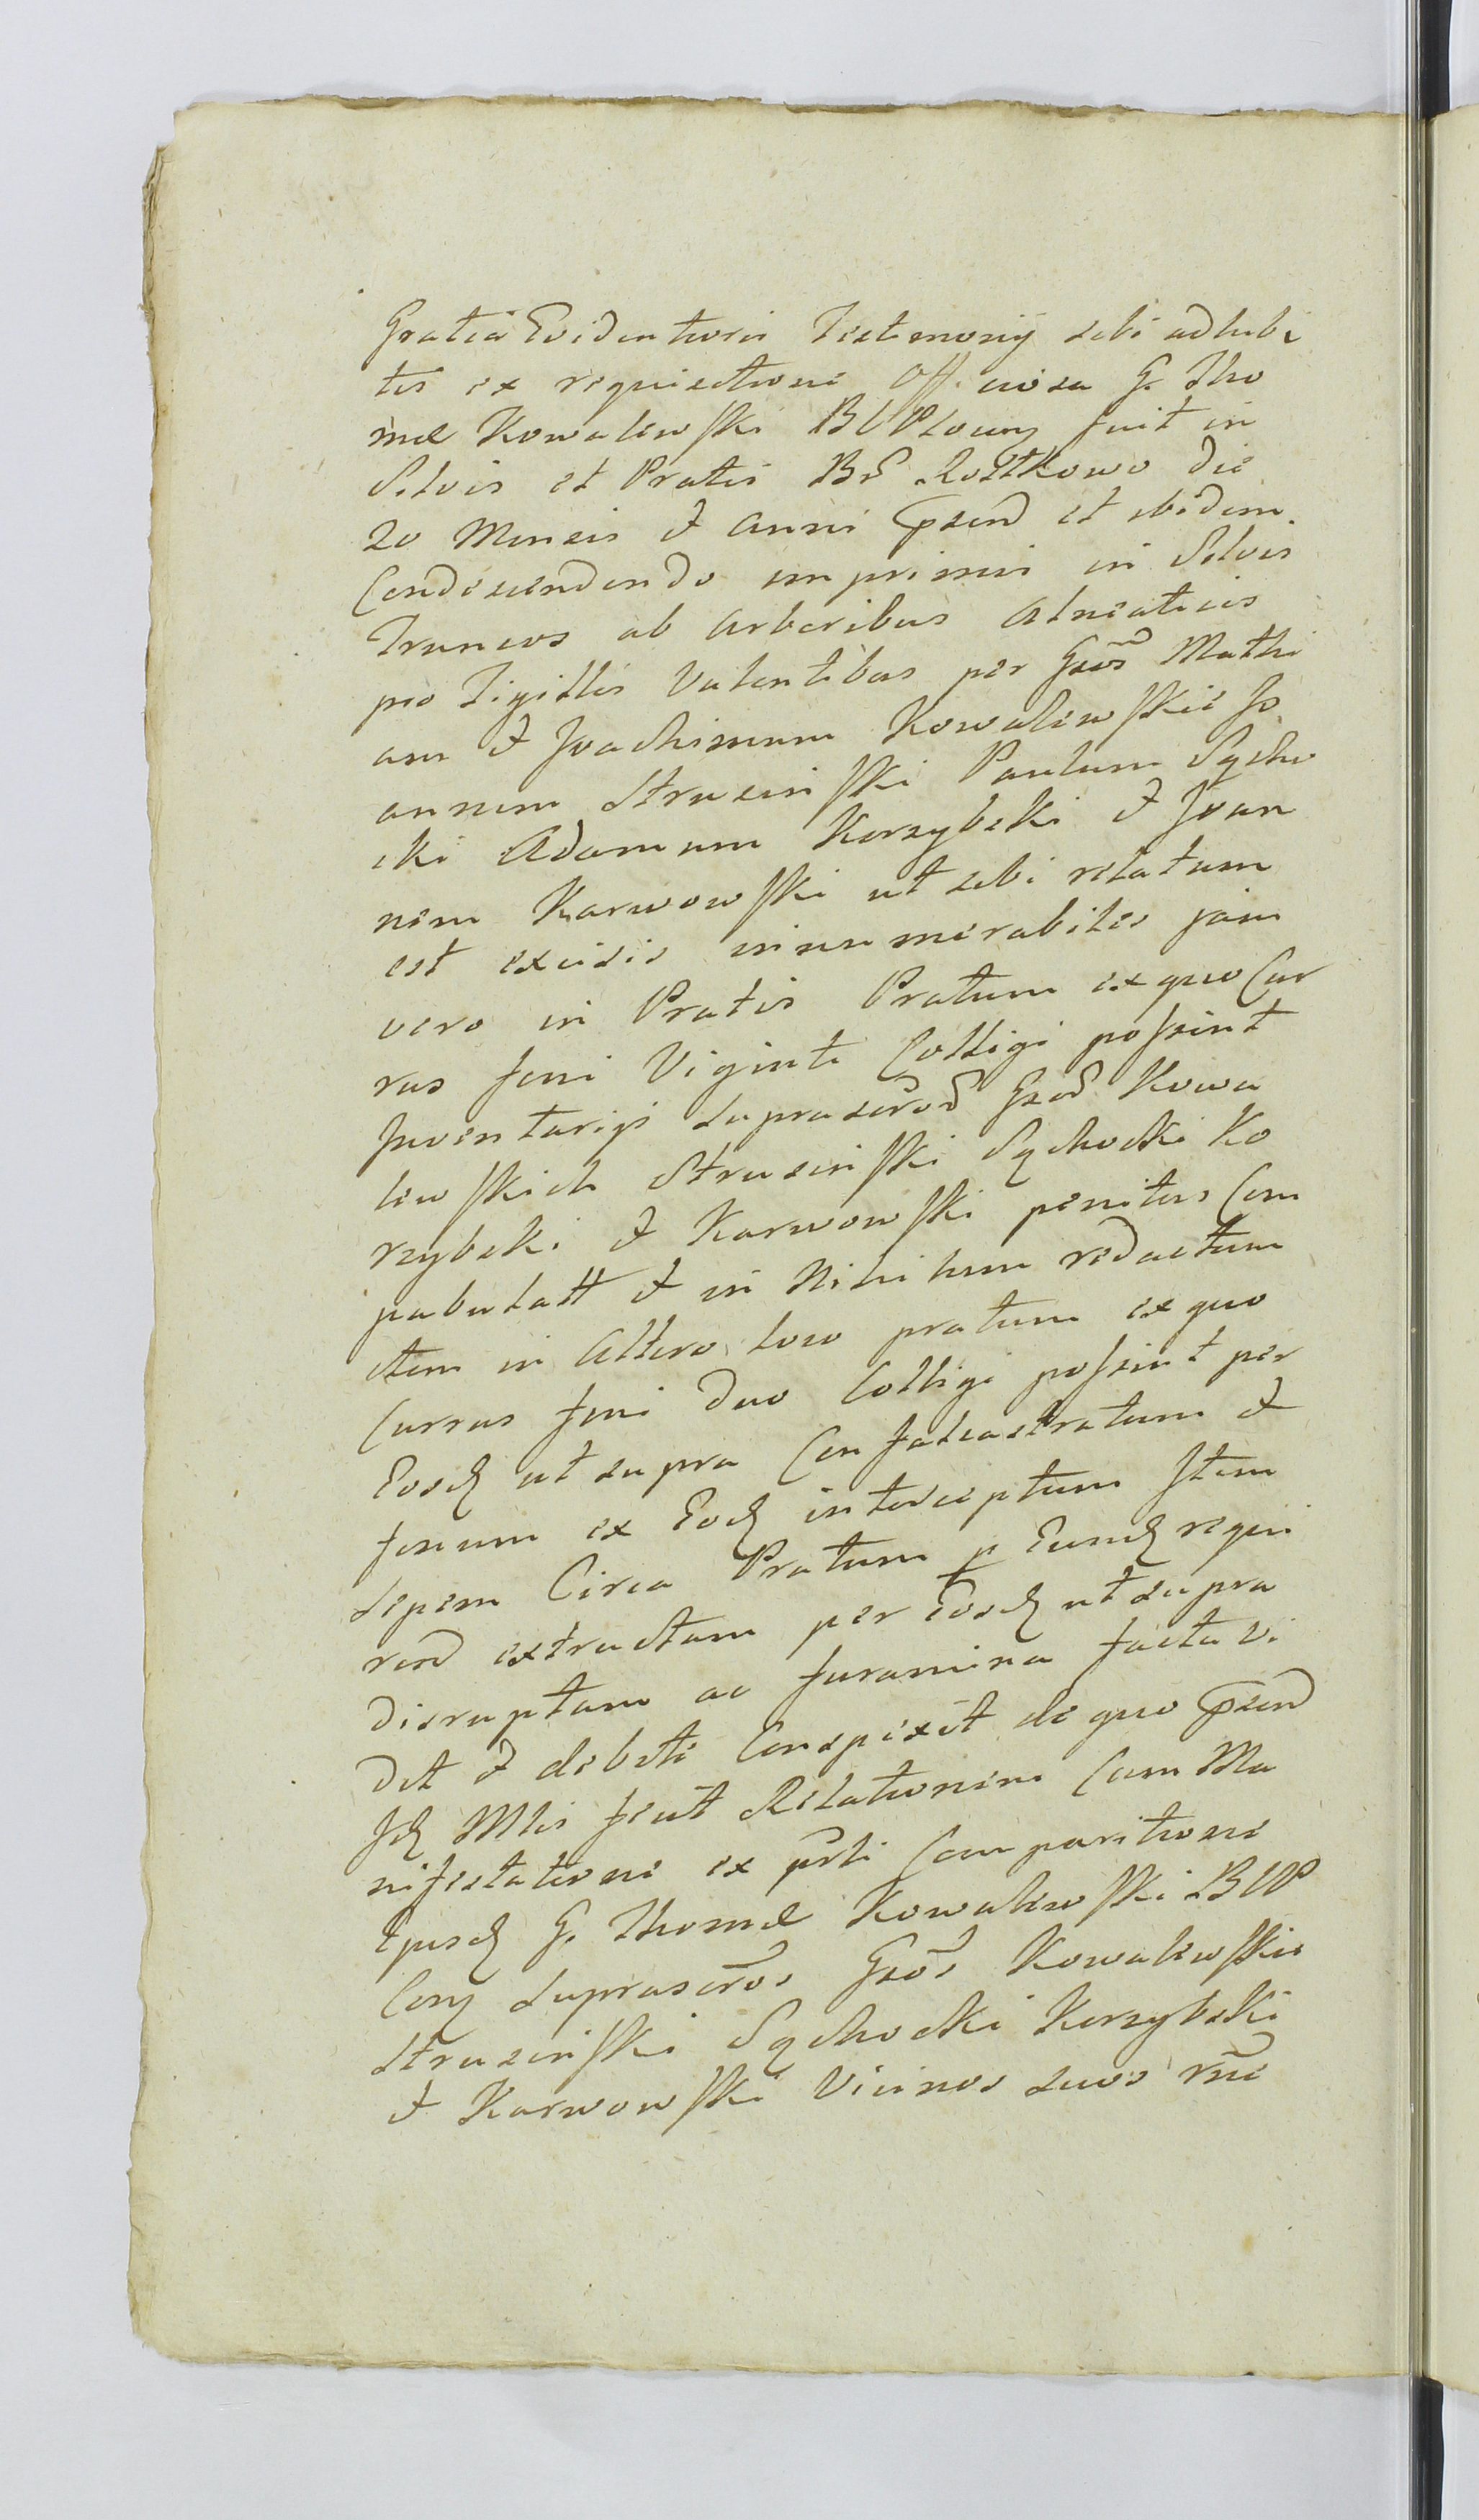 Gratia Evidentioris Testimonij sibi adhibi
tis ex requisitione Officiosa G. Tho
mæ Kowalewski BVPlocen fuit in
Silvis et Pratis Br̃ Rostkowo die
20 Mensis & Anni p̃send et ibidem
Condescendendo imprimis in Silvis
Truncos ab Arboribus Alneaticis
pro Tigillis Valentibus per Gsos̃ Mathi
am & Joachimum Kowalewskie Jo
annem Strusinski Paulum Sycho
cki Adamum Korzybski & Joan
nem Karwowski ut sibi relatum
est excisis innumerabiles jam
vero in Pratis Pratum ex quo Cur
rus feni Viginti Colligi possint
Inventarijs suprascr̃od Gsod̃ Kowa
lewskich Strusinski Sychocki Ko
rzybski & Karwowski penitus Com
pabulatt & in Nihilum redactum
item in Altero loco pratum ex quo
Currus feni duo Colligi possint per
Eosd ut supra Confalcastratum &
fenum ex Eod interceptum Item
sepem Circa Pratum p Eund requi
rend extructam per Eosd ut supra
disruptam ac Juramina facta vi
dit & debite Conspexit de quo p̃send
Id Mlis fecit Relationem Cum Ma
nifestatione ex pr̃ti Comparitione
Ejusd G. Thomæ Kowalewski BVP
Cong suprascr̃os Gsos̃ Kowalewskie
Strusinski Sychocki Korzybski
& Karwowski Vicinos suos rñe